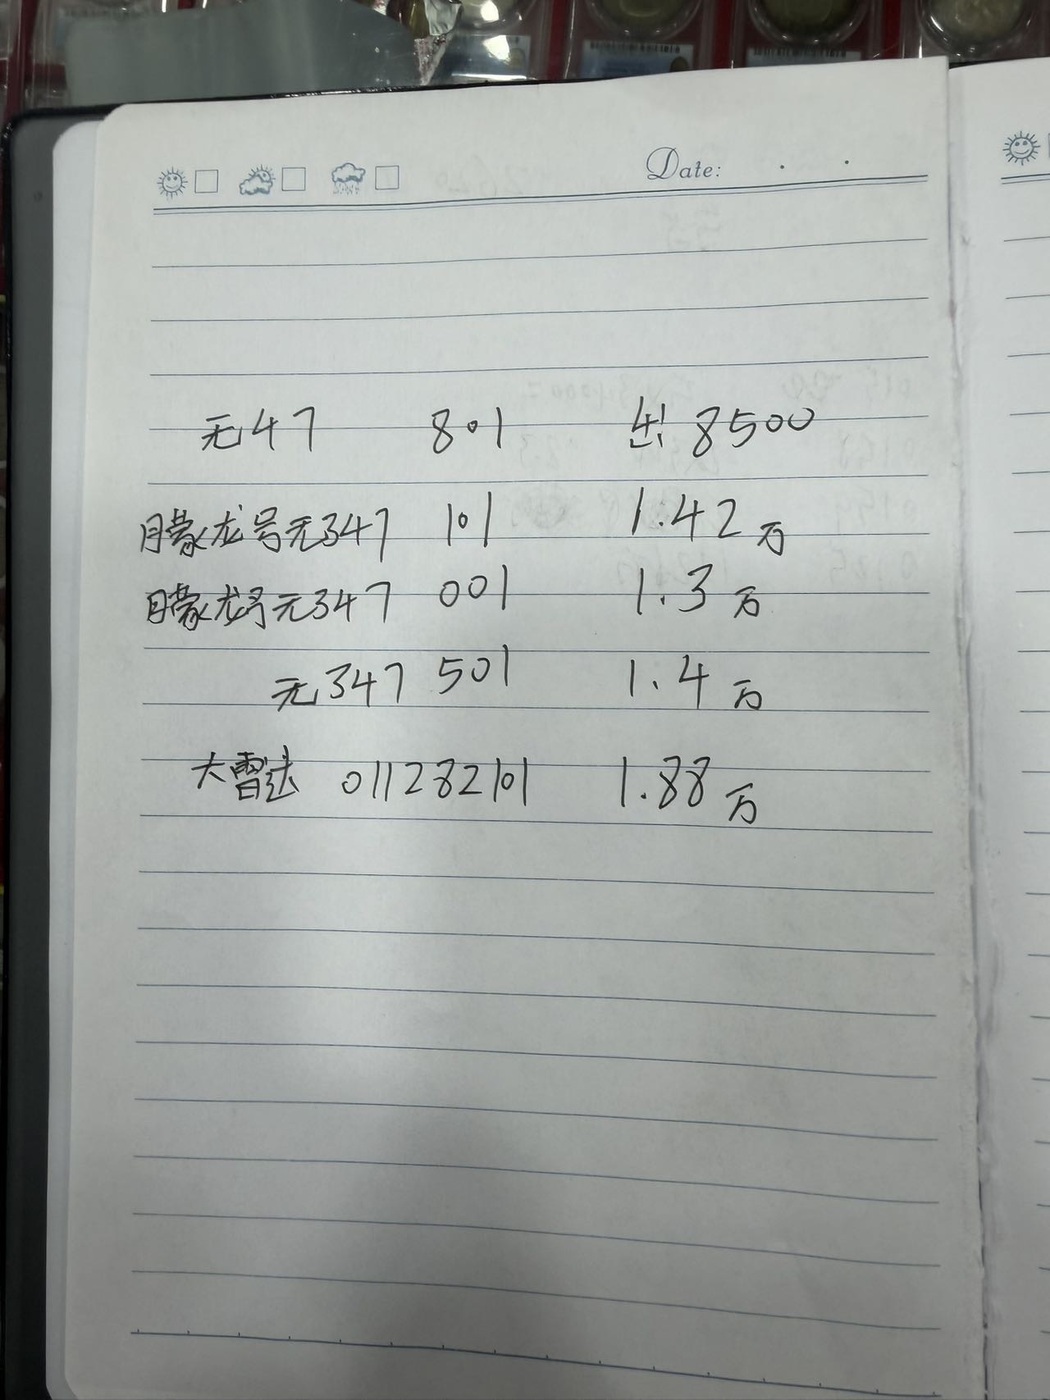 Date:
无47 801 出8500
朦龙号无347 101 1.42万
朦龙号无347 001 1.3万
无347 501 1.4万
大雷达 011282101 1.88万